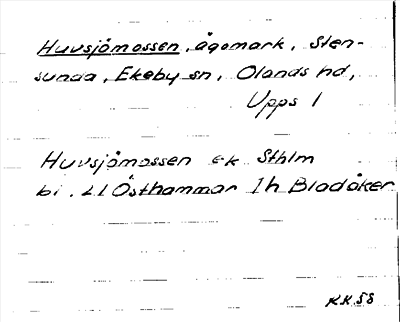 Huvsjömossen, ägomark, Sten-
sunda, Ekeby sn, Olands hd,
Upps l
Huvsjömossen ek Sthlm
bi. Ll Östhammar 1h Bladåker
KK 58